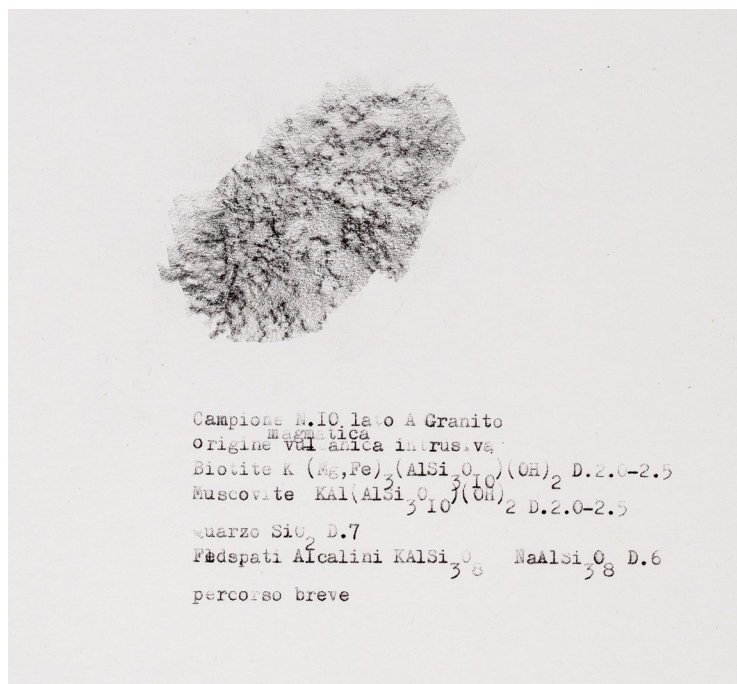 Campione N.IO lato A Granito
magmatica
origine vulcanica intrusiva
Biotite K (Mg,Fe)3(AlSi3OIO)(OH)2 D.2.0-2.5
Muscovite KAl(AlSi3OIO)(OH)2 D.2.0-2.5
quarzo SiO2 D.7
Fedspati Alcalini KAlSi3O8 NaAlSi3O8 D.6
percorso breve